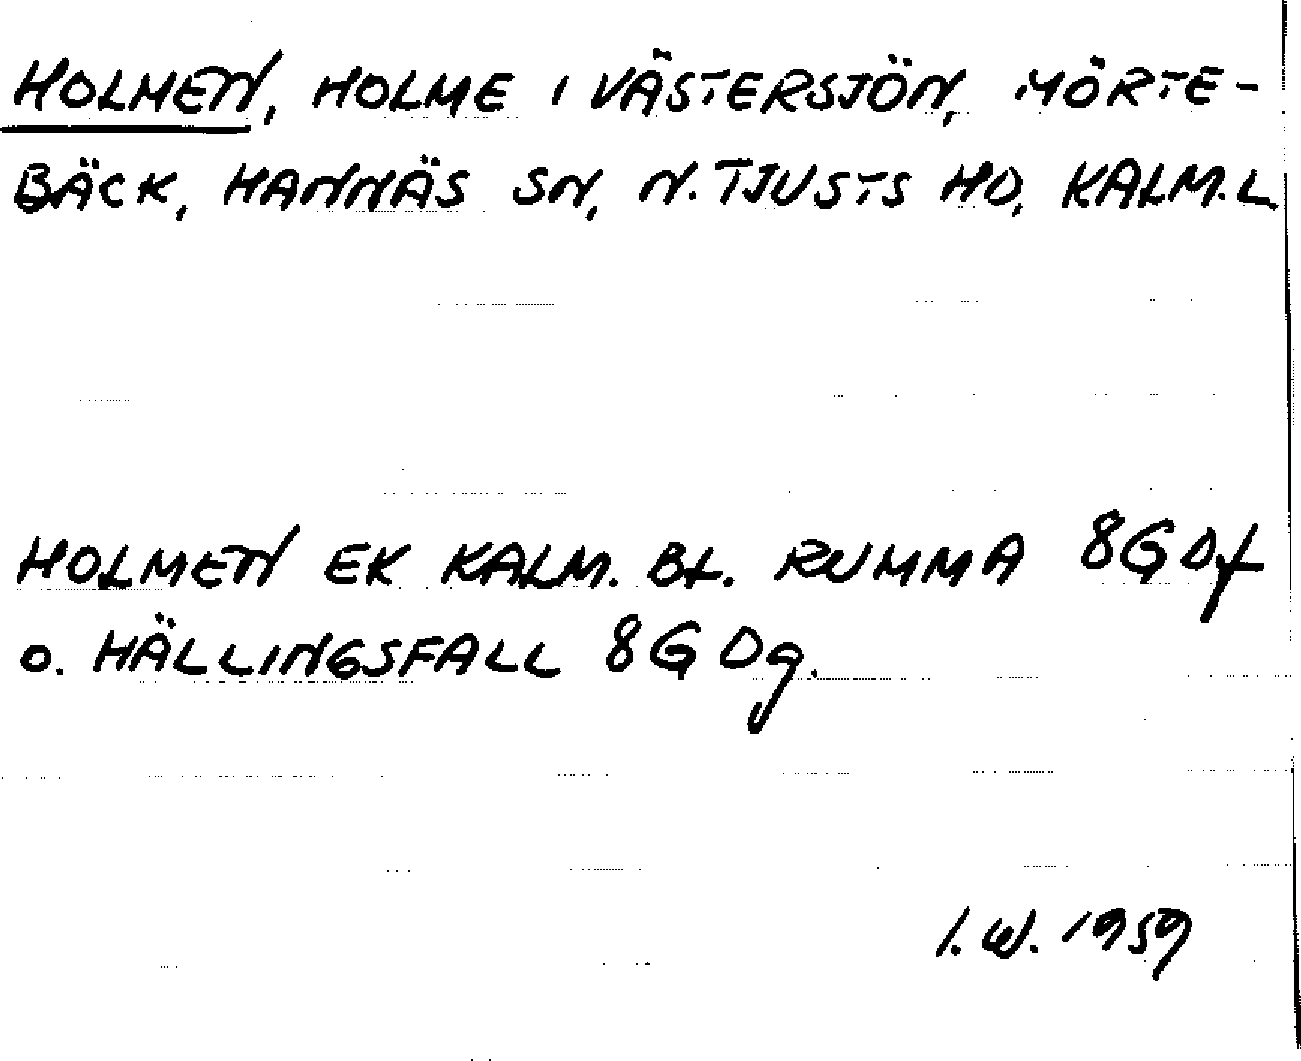 HOLMEN, HOLME I VÄSTERSJÖN, MÖRTE-
BÄCK, HANNÄS SN, N. TJUSTS HD, KALM. L.
HOLMEN EK KALM. BL. RUMMA 8G Df
o. HÄLLINGSFALL 8G Dg.
I. W. 1959